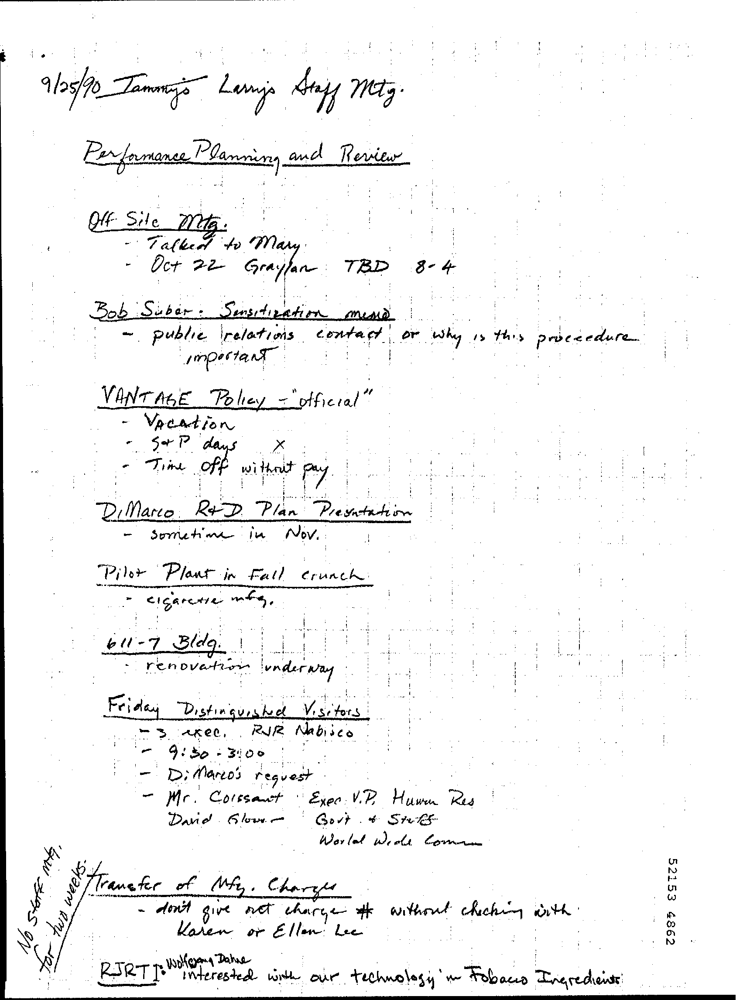 9/25/90 Tammy's Larry's Staff Mtg.
Performance Planning and Review
Off Site Mtg.
- Talked to Mary
- Oct 22 Graylan TBD 8-4
Bob Suber - Sensitization memo
- public relations contact or why is this proceedure
important
VANTAGE Policy - "official"
- Vacation
- S+P days X
- Time off without pay
DiMarco R+D Plan Presntation
- sometime in Nov.
Pilot Plant in Fall crunch
- cigarette mfg.
611-7 Bldg.
- renovation underway
Friday Distinguished Visitors
- 3 exec. RJR Nabisco
- 9:30 - 3:00
- DiMarco's request
- Mr. Coissant Exec V.P. Human Res
David Gov't + 
World Wide Comm
Transfer of Mfg. Charges
- don't give out charge # without checking with
Karen or Ellen Lee
RJRTI: Wolfgang
interested with our technology in Tobacco Ingredients
No Staff mtg.
for two weeks.
52153 4862